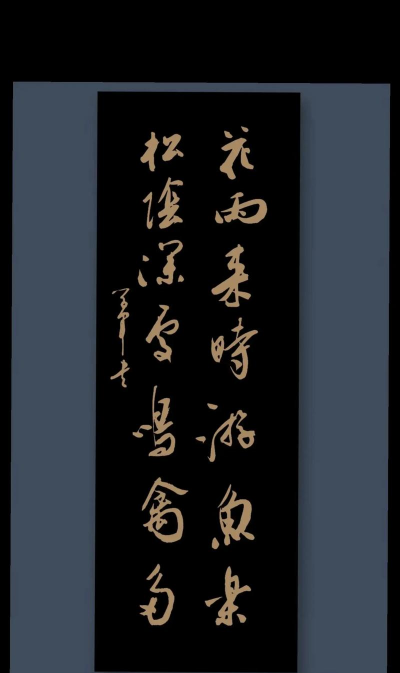 花雨来時游魚樂
松陰深處鳴禽多